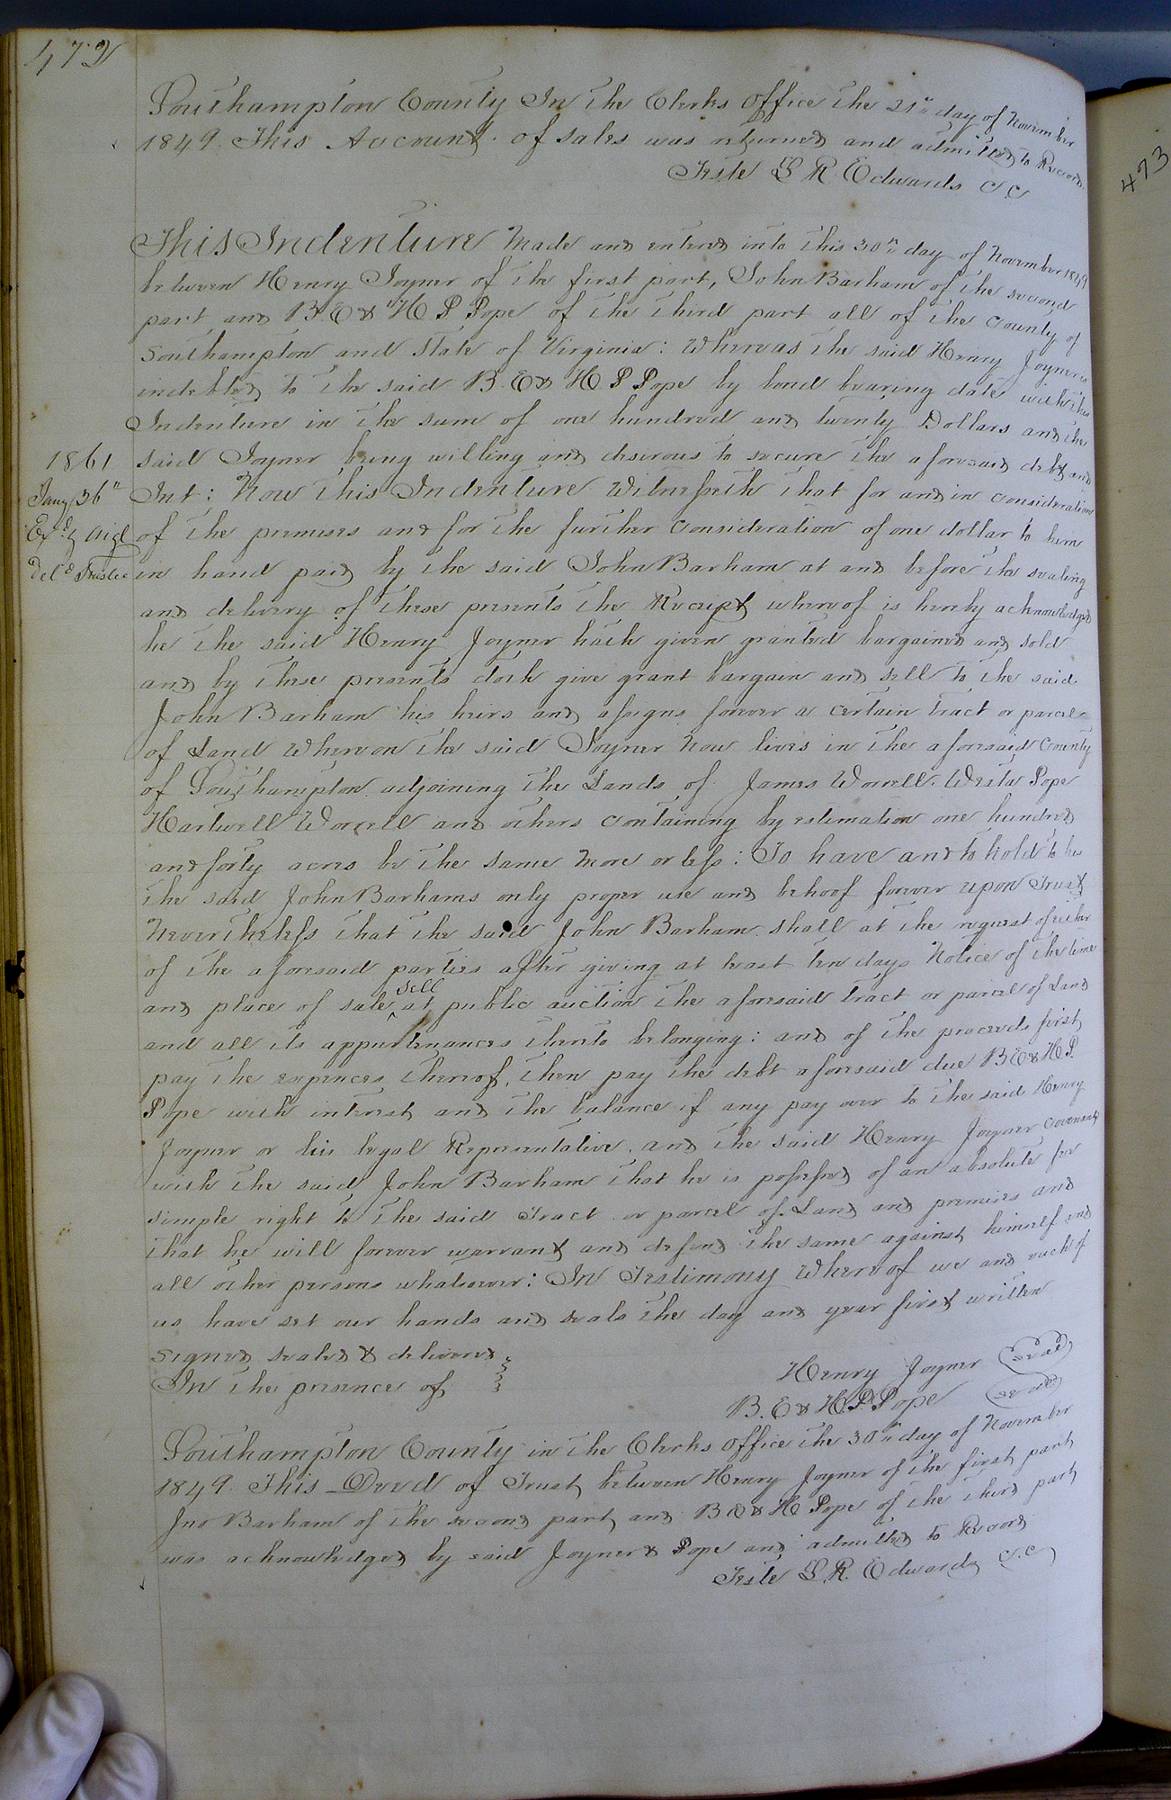 472
Southampton County In the Clerks Office the 21st day of November
1849. This Account of sales was returned and admitted to Record.
Teste L R Edwards C.C
This Indenture Made and entered into this 30th day of November 1849
between Henry Joyner of the first part, John Barham of the second
part and B. E & H P Pope of the third part all of the County of
Southampton and State of Virginia: Whereas the said Henry Joyner is
indebted to the said B. E & H P Pope by bond bearing date with this
Indenture in the sum of one hundred and twenty Dollars and the
said Joyner being willing and desirous to secure the aforesaid debt and
Int: Now this Indenture Witnesseth that for and in consideration
of the premises and for the further consideration of one dollar to him
in hand paid by the said John Barham at and before the sealing
and delivery of these presents the Receipt whereof is hereby acknowledged
he the said Henry Joyner hath given granted bargained and sold
and by these presents doth give grant bargain and sell to the said
John Barham his heirs and assigns forever a certain tract or parcel
of Land Whereon the said Joyner Now lives in the aforesaid County
of Southampton adjoining the Lands of James Worrell. Pope
Hartwell Worrell and others containing by estimation one hundred
and forty acres be the same More or less: To have and to hold to
the said John Barhams only proper use and behoof forever upon Trust
Nevertheless that the said John Barham shall at the request of either
of the aforesaid parties after giving at least ten days Notice of the time
and place of sale sell at public auction the aforesaid tract or parcel of Land
and all its appurtenances thereto belonging: and of the proceeds first
pay the expences thereof, then pay the debt aforesaid due B E & H P.
Pope with interest and the balance if any pay over to the said Henry
Joyner or his legal Representative, and the said Henry Joyner covenants
with the said John Barham that he is possessed of an absolute fee
simple right to the said Tract or parcel of Land and premises and
that he will forever warrant and defend the same against himself and
all other persons whatsoever: In Testimony Whereof we and each of
us have set our hands and seals the day and year first written
Signed sealed & delivered
In the presence of
Henry Joyner seal
B. E & H. P. Pope seal
Southampton County in the Clerks Office the 30th day of November
1849. This Deed of Trust between Henry Joyner of the first part
Jno Barham of the second part and B E & H Pope of the third part
was acknowledged by said Joyner & Pope and admitted to Record
Teste L. R. Edwards C.C
1861
Jany 26th
Exd & origl
deld Trustee
473